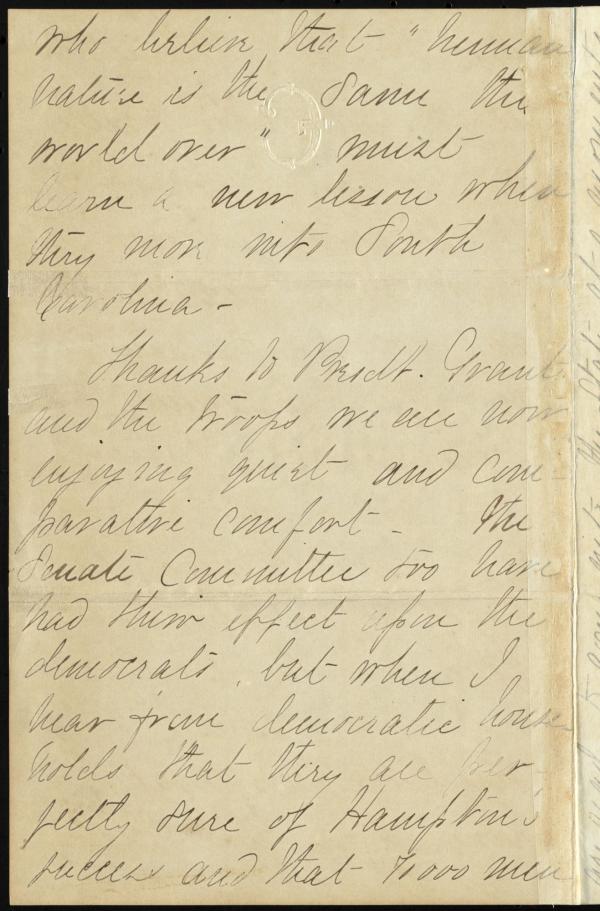 who believe that "human
nature is the same the
world over" must
learn a new lesson when
they move into South
Carolina -
Thanks to Presdt. Grant
and the troops we are now
enjoying quiet and com-
parative comfort - The
Senate Committee too have
had their effect upon the
democrats, but when I
hear from democratic house
holds that they are per-
fectly sure of Hampton's
success and that 000 men